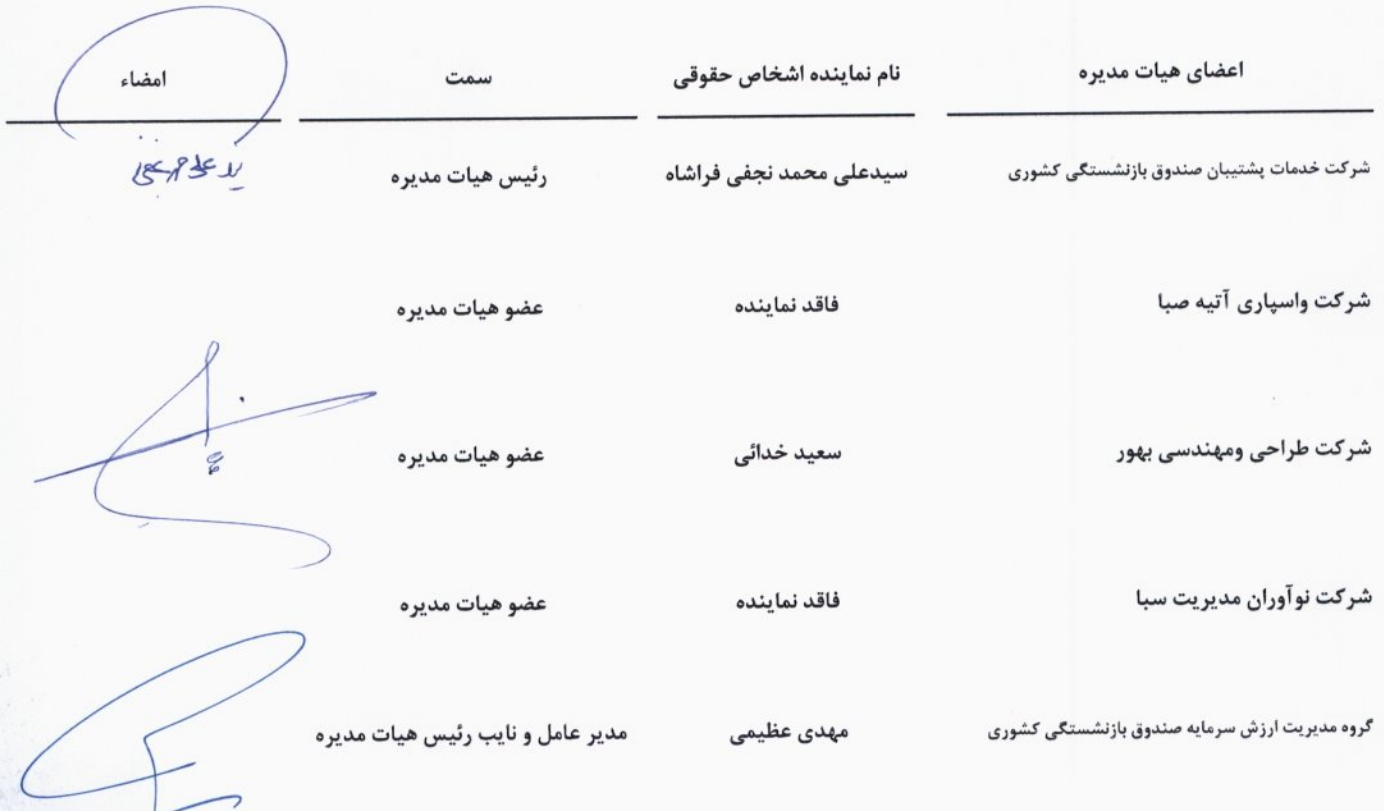 اعضای هیات مدیره نام نماینده اشخاص حقوقی سمت امضاء
شرکت خدمات پشتیبان صندوق بازنشستگی کشوری سیدعلی محمد نجفی فراشاه رئیس هیات مدیره
شرکت واسپاری آتیه صبا فاقد نماینده عضو هیات مدیره
شرکت طراحی ومهندسی بهور سعید خدائی عضو هیات مدیره
شرکت نوآوران مدیریت سبا فاقد نماینده عضو هیات مدیره
گروه مدیریت ارزش سرمایه صندوق بازنشستگی کشوری مهدی عظیمی مدیر عامل و نایب رئیس هیات مدیره